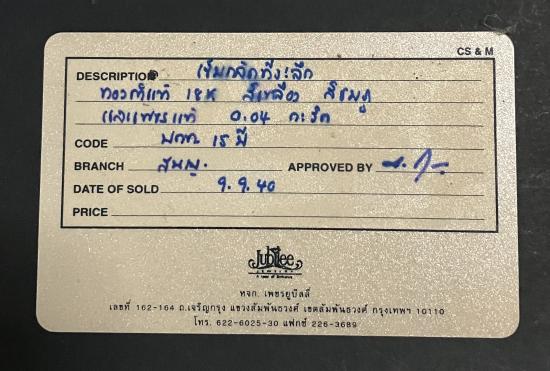 CS & M
DESCRIPTION เข็มกลัดที่ระลึก
ทองคำแท้ 18K สีเหลือง สีชมภู
และเพชรแท้ 0.04 กะรัต
CODE
BRANCH
APPROVED BY
DATE OF SOLD 9.9.40
PRICE
Jubilee
หจก. เพชรยูบิลลี่
เลขที่ 162-164 ถ.เจริญกรุง แขวงสัมพันธวงศ์ เขตสัมพันธวงศ์ กรุงเทพฯ 10110
โทร. 622-6025-30 แฟกซ์ 226-3689